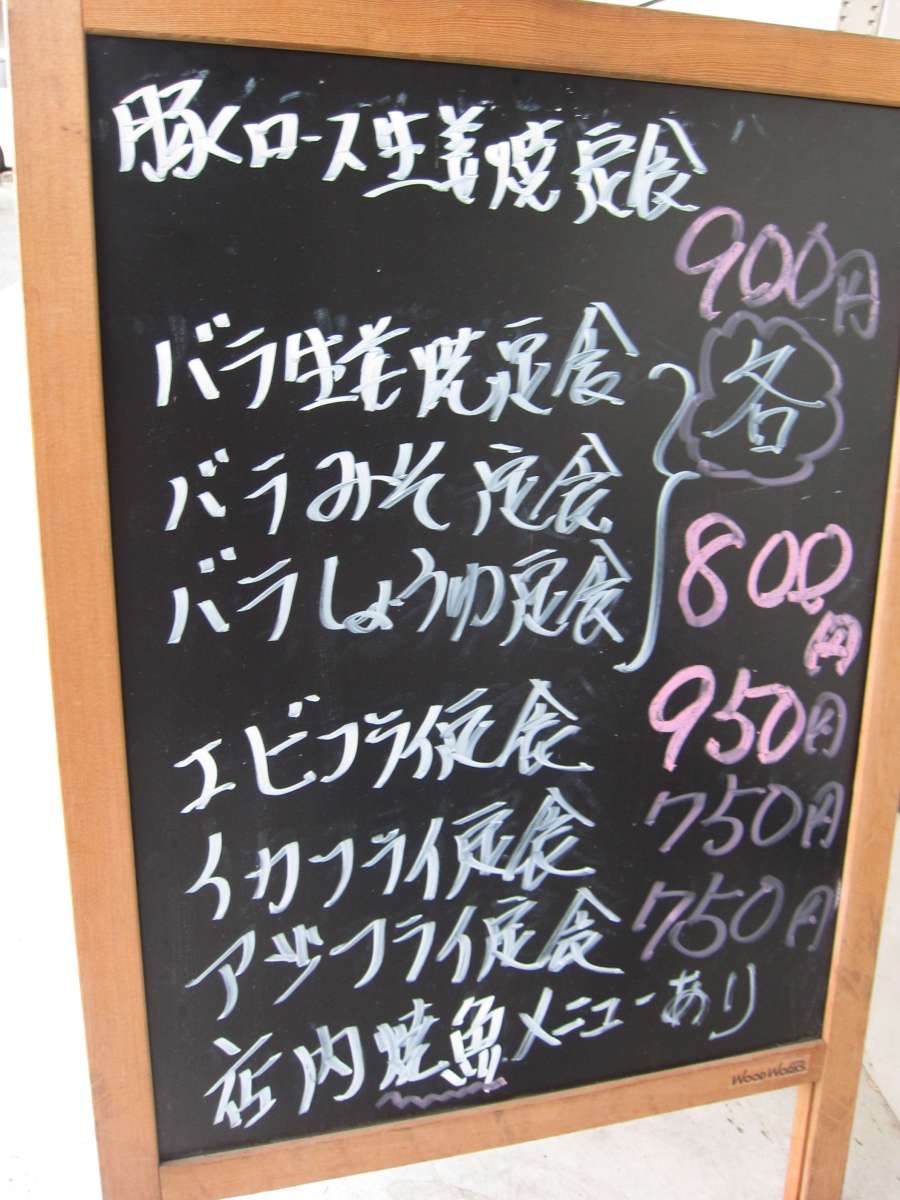 豚ロース生姜焼定食
900円
バラ生姜焼定食
各
バラみそ定食
バラしょうゆ定食
800円
エビフライ定食 950円
イカフライ定食 750円
アジフライ定食 750円
店内焼魚メニューあり
WOOD WORKS